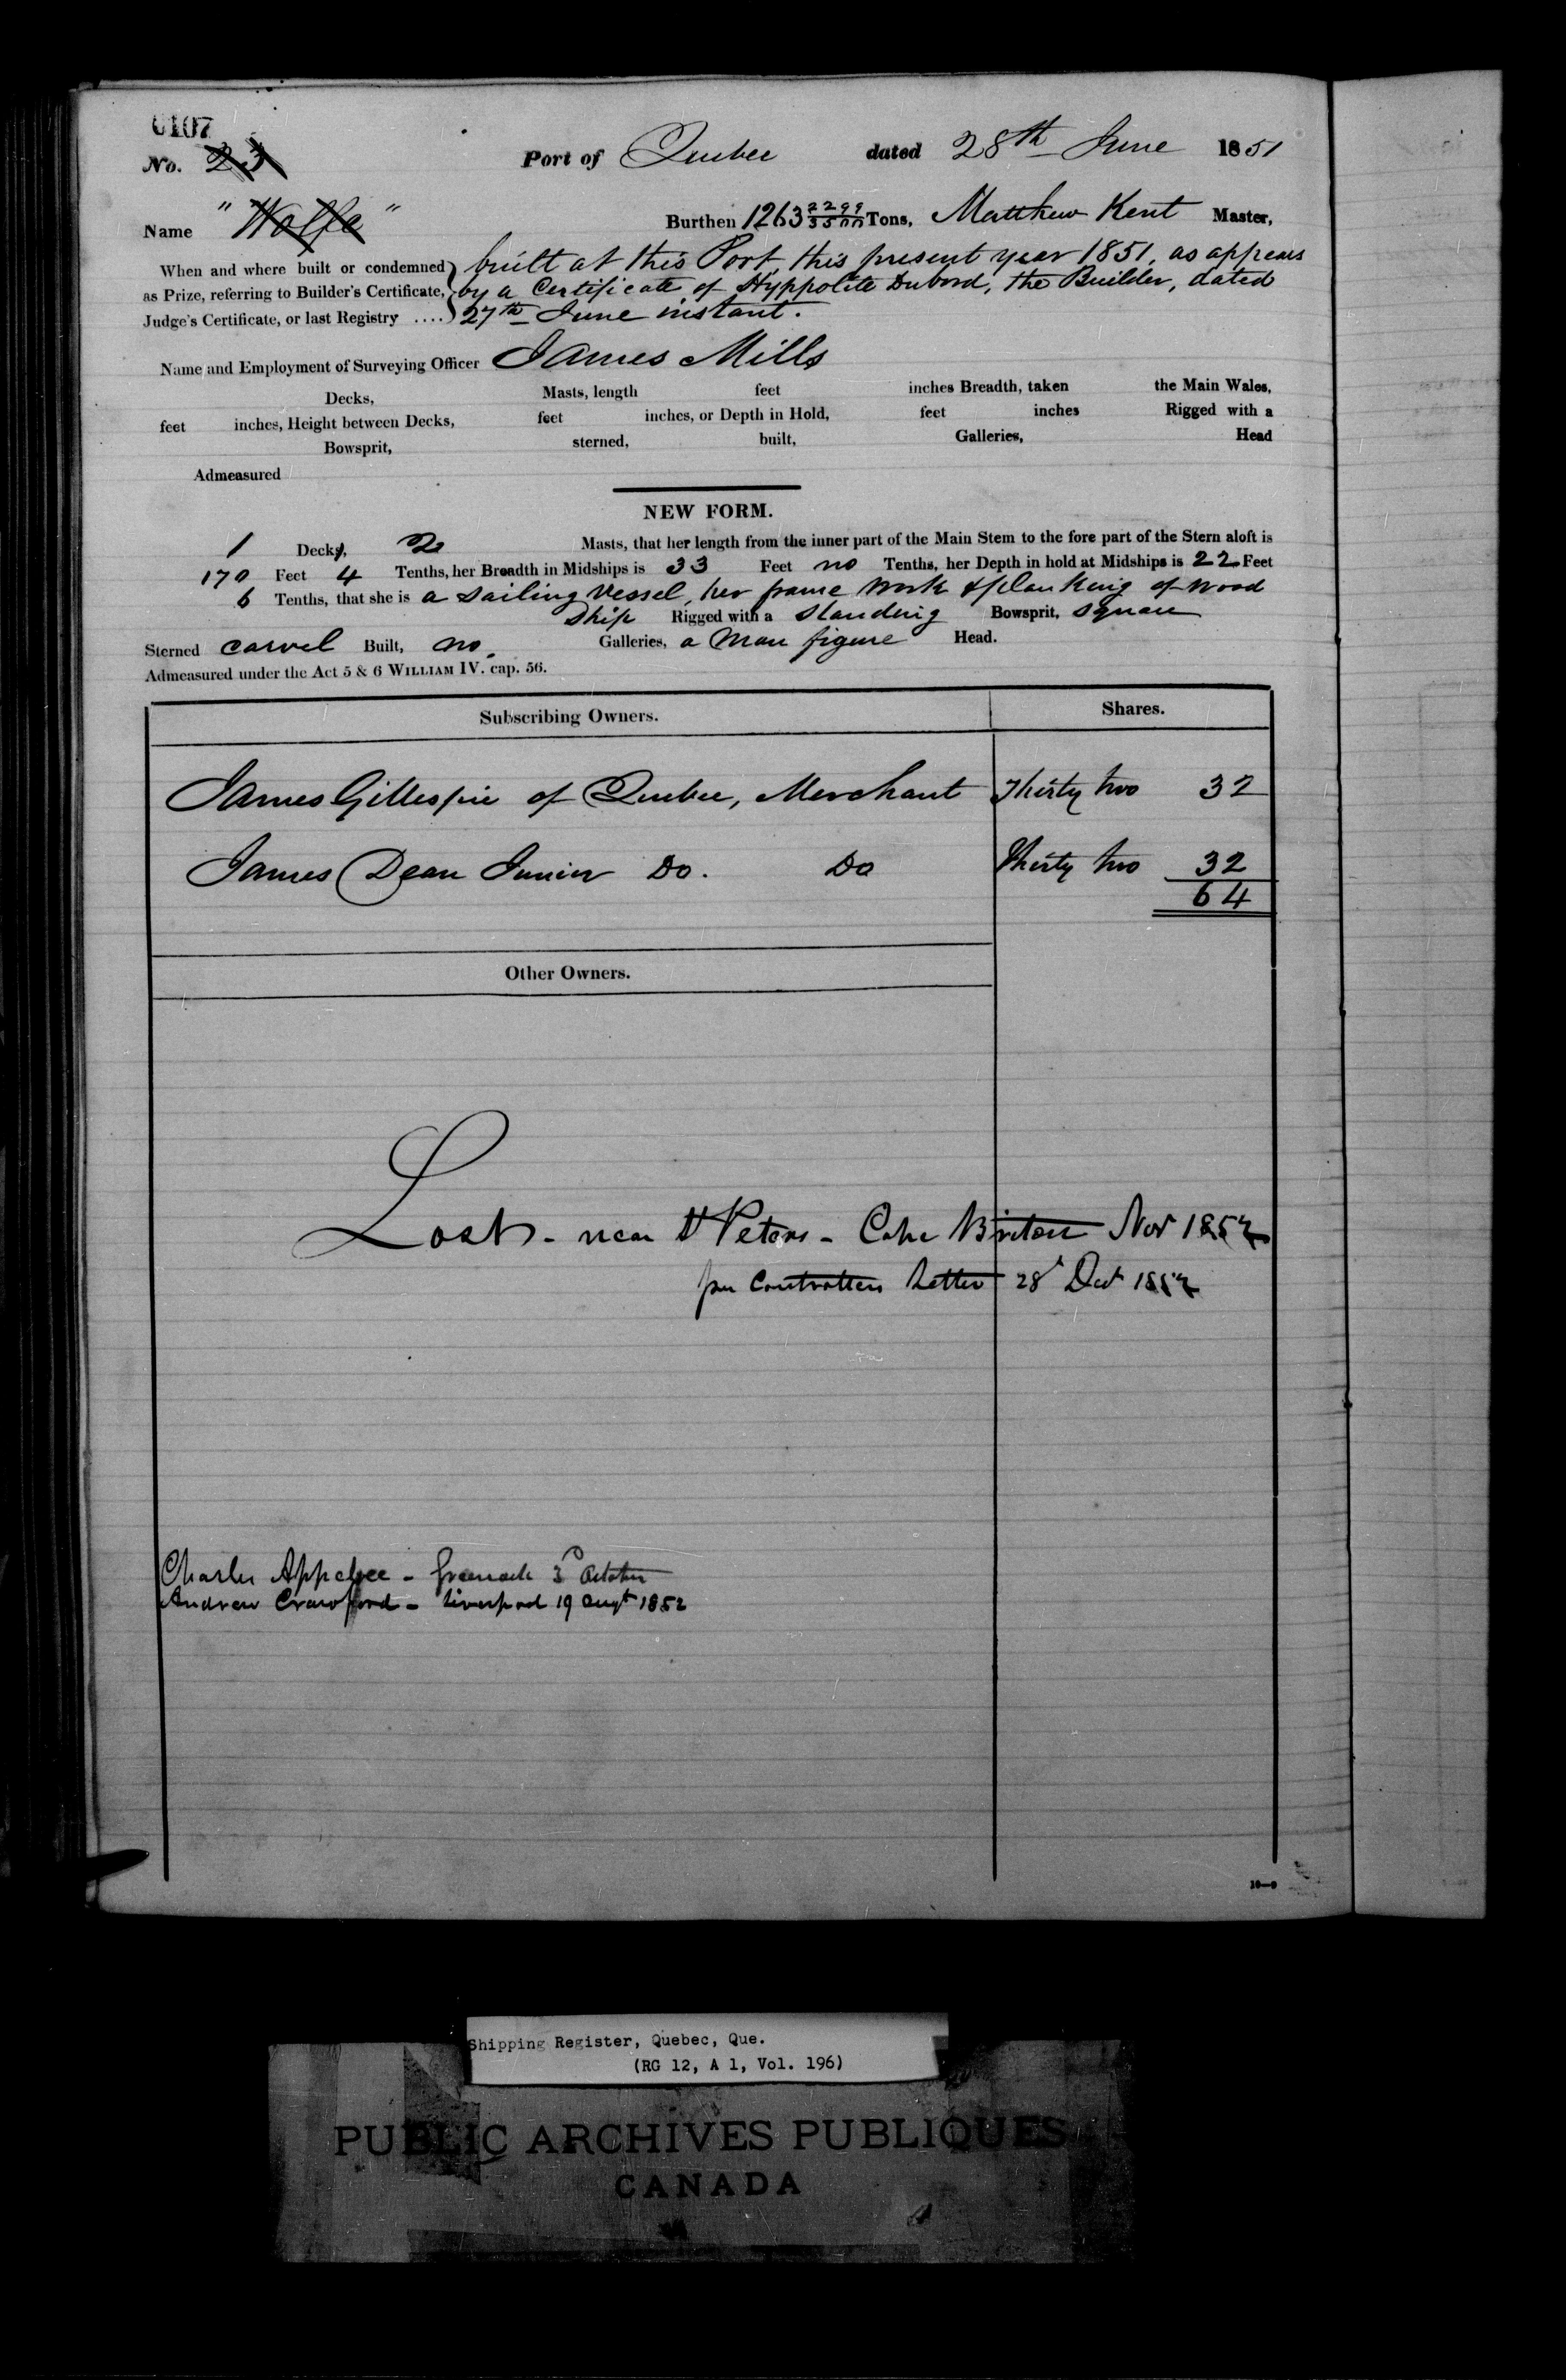 0107
No. 23 Port of Quebec dated 28th June 1851
Name "Wolfe" Burthen 1263 2299/3500 Tons, Matthew Kent Master,
When and where built or condemned built at this Port this present year 1851, as appears
as Prize, referring to Builder's Certificate, by a Certificate of Hyppolite Dubord, the Builder, dated
Judge's Certificate, or last Registry .... 27th June instant.
Name and Employment of Surveying Officer James Mills
Decks, Masts, length feet inches Breadth, taken the Main Wales,
feet inches, Height between Decks, feet inches, or Depth in Hold, feet inches Rigged with a
Bowsprit, sterned, built, Galleries, Head
Admeasured
NEW FORM.
1 Decks, 2 Masts, that her length from the inner part of the Main Stem to the fore part of the Stern aloft is
170 Feet 4 Tenths, her Breadth in Midships is 33 Feet no Tenths, her Depth in hold at Midships is 22 Feet
6 Tenths, that she is a sailing vessel, her frame work & planking of wood
Ship Rigged with a standing Bowsprit, square
Sterned carvel Built, no. Galleries, a Man figure Head.
Admeasured under the Act 5 & 6 WILLIAM IV. cap. 56.
Subscribing Owners. Shares.
James Gillespie of Quebec, Merchant Thirty two 32
James Dean Junior Do. Do Thirty two 32
64
Other Owners.
Lost - near St Peters - Cape Breton Nov 1852
per Controllers Letter 28 Dec 1852
Charles Appelbee - Greenock 3d October
Andrew Crawford - Liverpool 19 Augt 1852
10—9
Shipping Register, Quebec, Que.
(RG 12, A 1, Vol. 196)
PUBLIC ARCHIVES PUBLIQUES
CANADA